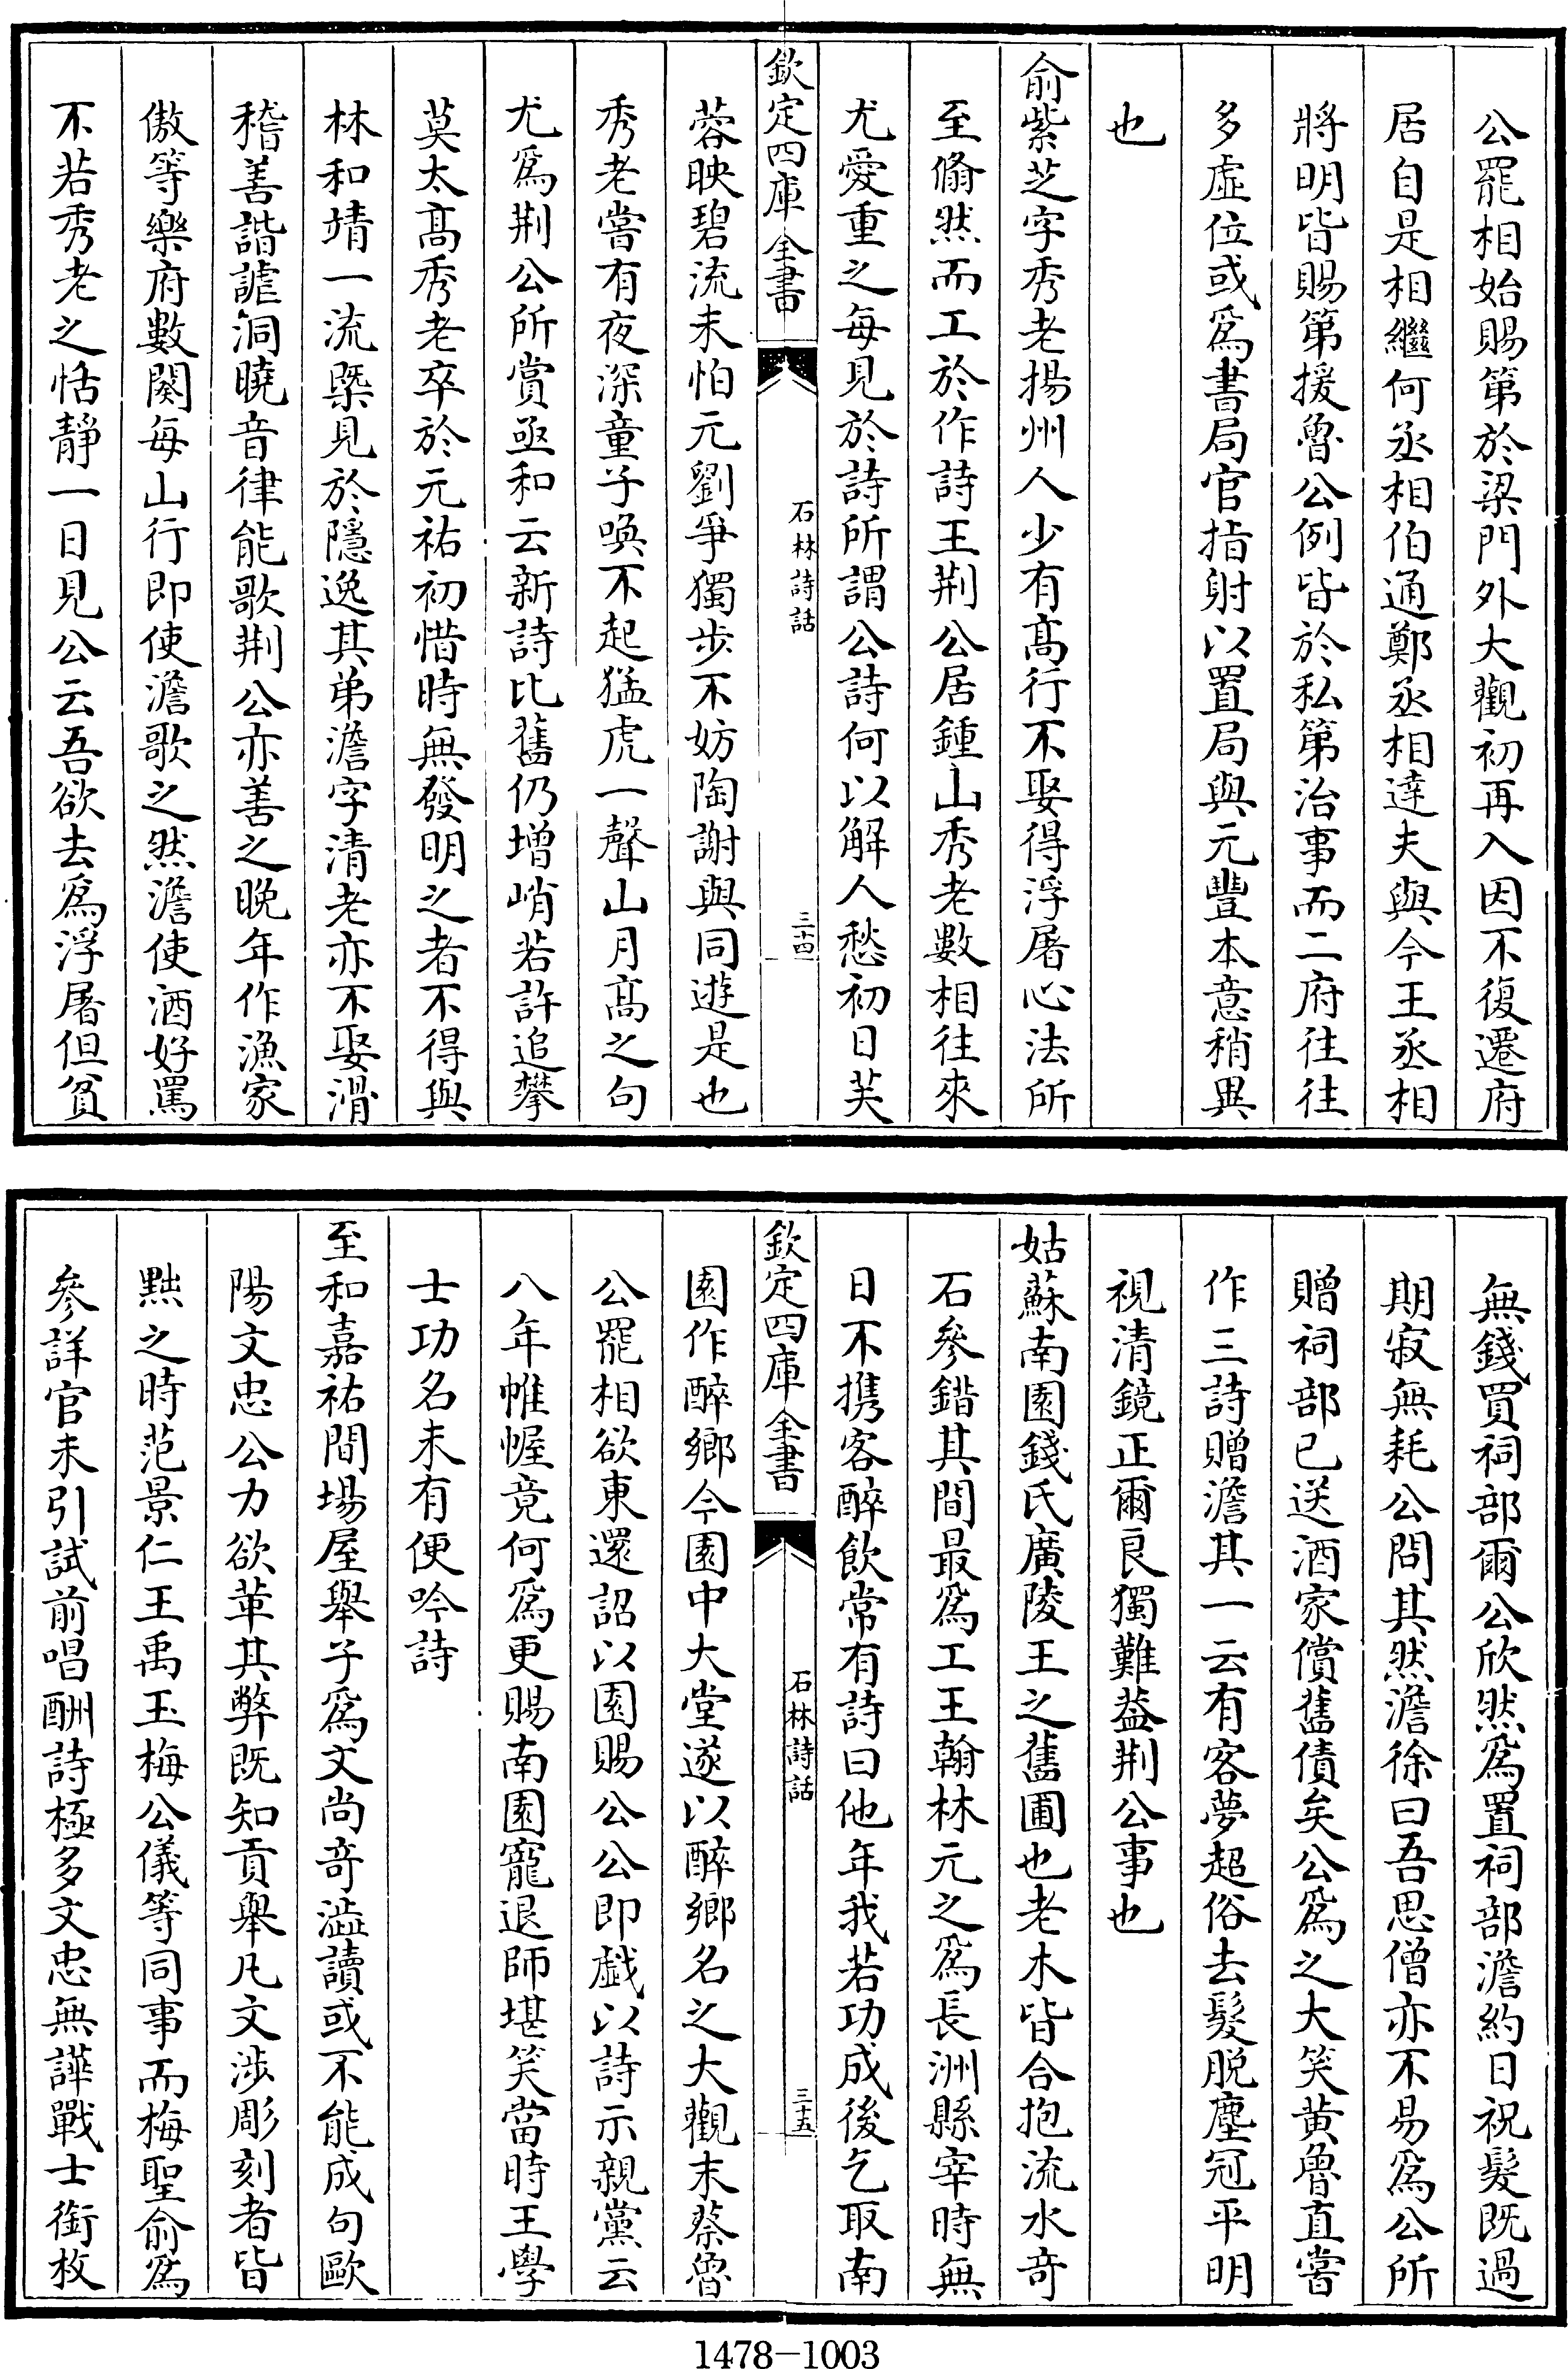 公罷相始賜第於梁門外大觀初再入因不復遷府
居自是相繼何丞相伯通鄭丞相達夫與今王丞相
將明皆賜第援魯公例皆於私第治事而二府往往
多虛位或爲書局官指射以置局與元豐本意稍異
也
俞紫芝字秀老揚州人少有髙行不娶得浮屠心法所
至翛然而工於作詩王荆公居鍾山秀老數相往來
尤愛重之每見於詩所謂公詩何以解人愁初日芙
欽定四庫全書
石林詩話
三十四
蓉映碧流未怕元劉爭獨步不妨陶謝與同遊是也
秀老嘗有夜深童子喚不起猛虎一聲山月髙之句
尤爲荆公所賞亟和云新詩比舊仍增峭若許追攀
莫太髙秀老卒於元祐初惜時無發明之者不得與
林和靖一流槩見於隱逸其弟澹字清老亦不娶滑
稽善諧謔洞曉音律能歌荆公亦善之晚年作漁家
傲等樂府數闋每山行即使澹歌之然澹使酒好罵
不若秀老之恬靜一日見公云吾欲去爲浮屠但貧
無錢買祠部爾公欣然爲置祠部澹約日祝髮既過
期寂無耗公問其然澹徐曰吾思僧亦不易爲公所
贈祠部已送酒家償舊債矣公爲之大笑黄魯直嘗
作三詩贈澹其一云有客夢超俗去髮脱塵冠平明
視清鏡正爾良獨難葢荆公事也
姑蘇南園錢氏廣陵王之舊圃也老木皆合抱流水奇
石參錯其間最爲工王翰林元之爲長洲縣宰時無
日不携客醉飲常有詩曰他年我若功成後乞取南
欽定四庫全書
石林詩話
三十五
園作醉鄉今園中大堂遂以醉鄉名之大觀末蔡魯
公罷相欲東還詔以園賜公公即戲以詩示親黨云
八年帷幄竟何爲更賜南園寵退師堪笑當時王學
士功名未有便吟詩
至和嘉祐間場屋舉子爲文尚奇澁讀或不能成句歐
陽文忠公力欲革其弊既知貢舉凡文涉彫刻者皆
黜之時范景仁王禹玉梅公儀等同事而梅聖俞爲
參詳官未引試前唱酬詩極多文忠無譁戰士銜枚
1478-1003